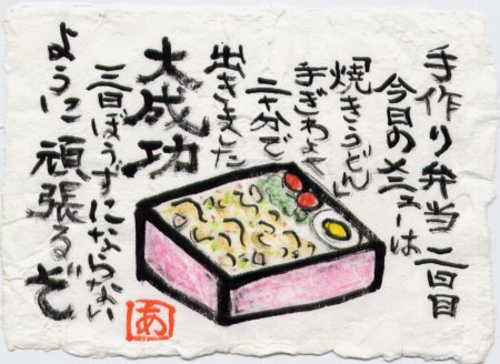 手作り弁当二回目
今日のメニューは
「焼きうどん」
手ぎわよく
二十分で
出きました
大成功
三日ぼうずにならない
ように頑張るぞ
あ